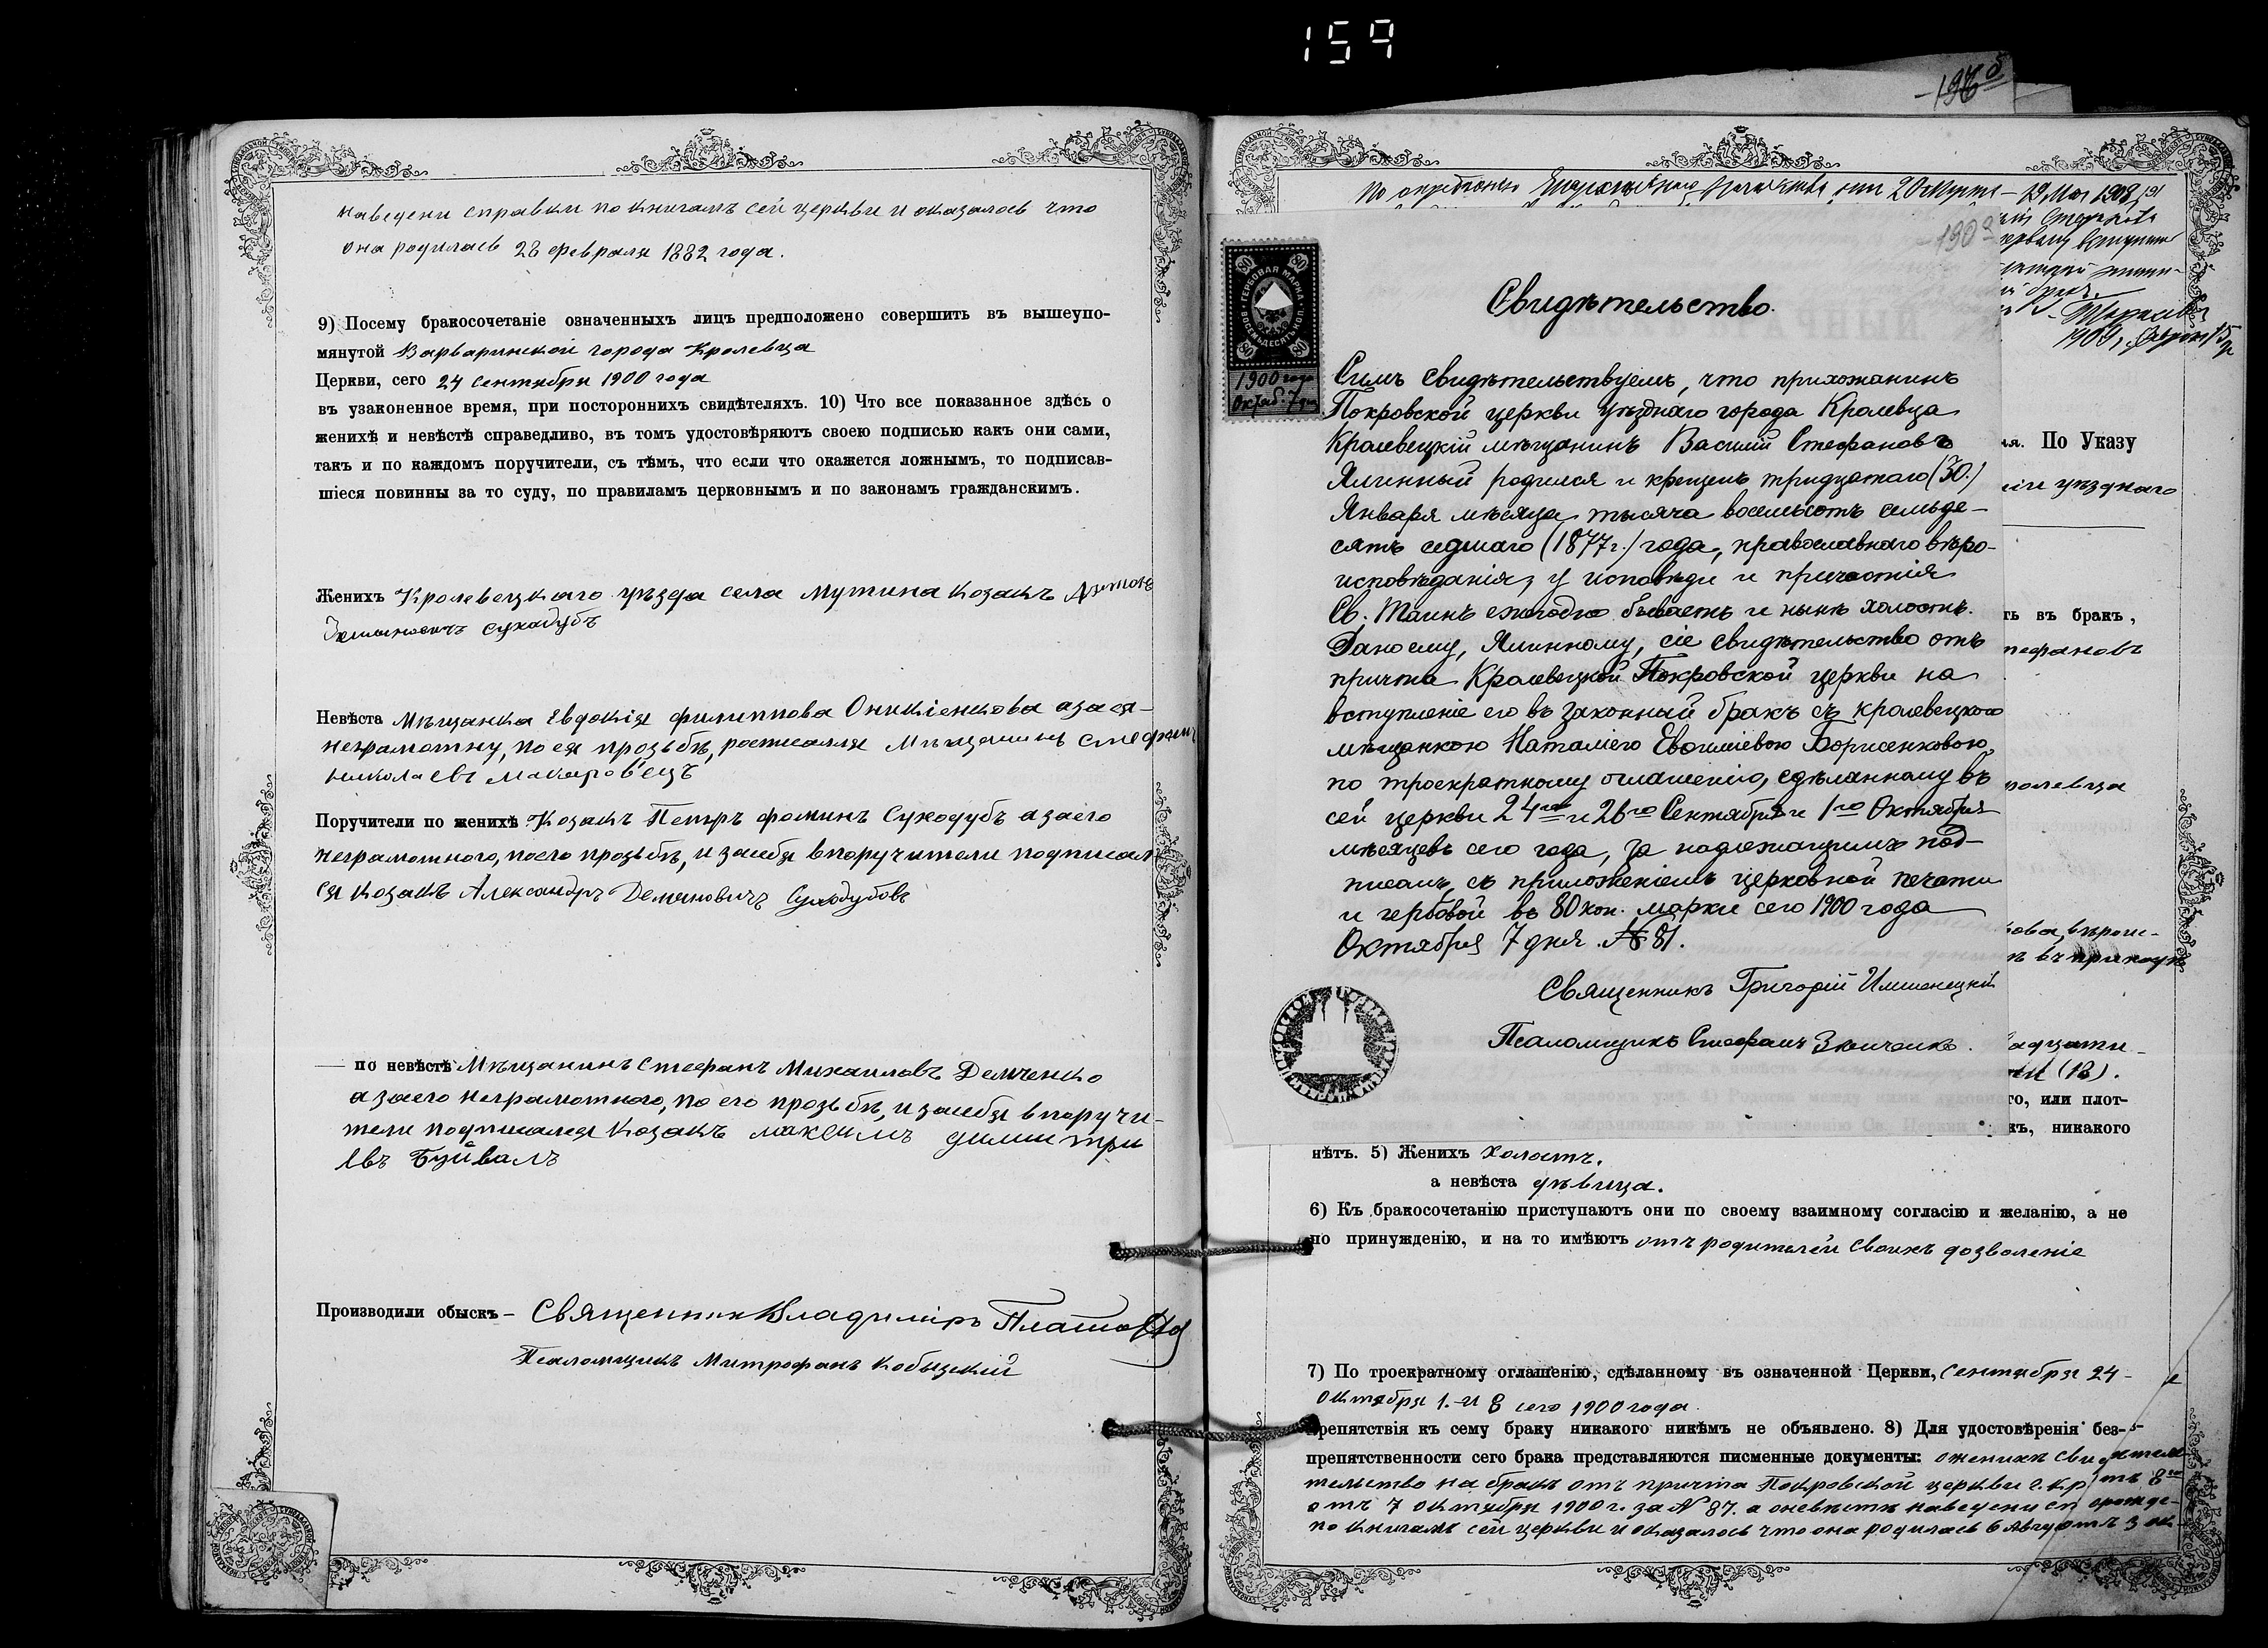 159
наведены справки по книгамъ сей церкви и оказалось что
она родилась 28 февраля 1882 года.
9) Посему бракосочетаніе означенныхъ лицъ предположено совершить въ вышеупо-
мянутой Варваринской города Кролевца
Церкви, сего 24 сентября 1900 года
въ узаконенное время, при постороннихъ свидѣтеляхъ. 10) Что все показанное здѣсь о
женихѣ и невѣстѣ справедливо, въ томъ удостовѣряютъ своею подписью какъ они сами,
такъ и по каждомъ поручители, съ тѣмъ, что если что окажется ложнымъ, то подписав-
шіеся повинны за то суду, по правиламъ церковнымъ и по законамъ гражданскимъ.
Женихъ Кролевецкаго уѣзда села Мутина Козакъ
Сухадубъ
Невѣста Мѣщанка Евдокія Филиппова Оникіенкова а за ея
неграмотну, по ея прозьбѣ, росписался Мѣщанинъ Стефанъ
николаевъ Макаровецъ
Поручители по женихѣ Козакъ Петръ Фоминъ Суходубъ а за его
неграмотного, по его прозьбѣ, и за себя в поручители подписал
ся козакъ Александръ Демяновичъ Суходубовъ
по невѣстѣ Мѣщанинъ Стефанъ Михаиловъ Демченко
а за его неграмотного, по его прозьбѣ, и за себя в поручи-
тели подписался Козакъ максимъ димитри
евъ Буйвалъ
Производили обыскъ – Священникъ Владиміръ
Псаломщикъ Митрофанъ Кобыцкий
20 марта – 19 мая 1908
Свидѣтельство.
ГЕРБОВАЯ МАРКА
ВОСЕМЬДЕСЯТЪ КОП.
80
80
80
80
1900 года
Октяб. 7 дня
Симъ свидѣтельствуемъ, что прихожанинъ
Покровской церкви уѣзднаго города Кролевца
Кролевецкій мѣщанинъ Василій Стефановъ
Ялинный родился и крещенъ тридцатаго (30.)
Января мѣсяца тысяча восемьсотъ семьде-
сятъ седмаго (1877 г.) года, православнаго вѣро-
исповѣданія, у исповѣди и причастія
Св. Таинъ ежегодно бываетъ и нынѣ холостъ.
Дано ему, Ялинному, сіе свидѣтельство отъ
причта Кролевецкой Покровской церкви на
вступленіе его въ законный бракъ съ кролевецкою
мѣщанкою Наталіею Евфиміевою Борисенковою,
по троекратному оглашенію, сдѣланному въ
сей церкви 24го и 26го Сентября и 1го Октября
мѣсяцевъ сего года, за надлежащимъ под-
писомъ, съ приложеніемъ церковной печати
и гербовой въ 80 коп. марки сего 1900 года
Октября 7 дня. № 81.
Священникъ Григорій Имшенецкій
Псаломщикъ Стефанъ Зюнченко.
ія. По Указу
уѣзднаго
ть въ бракъ,
тефановъ
ролевца
адцати-
(18).
го, или плот-
къ, никакого
нѣтъ. 5) Женихъ холостъ.
а невѣста дѣвица.
6) Къ бракосочетанію приступаютъ они по своему взаимному согласію и желанію, а не
по принужденію, и на то имѣютъ отъ родителей своихъ дозволеніе
7) По троекратному оглашенію, сдѣланному въ означенной Церкви, Сентября 24 -
Октября 1. и 8 сего 1900 года
препятствія къ сему браку никакого никѣмъ не объявлено. 8) Для удостовѣренія без-
препятственности сего брака представляются писменные документы: о женихѣ сви
тельство на бракъ отъ причта Покровской церкви г. Кр
отъ 7 октября 1900 г. за № 87. а о невѣстѣ наведены сп
по книгамъ сей церкви и оказалось что она родилась 6 Авгу